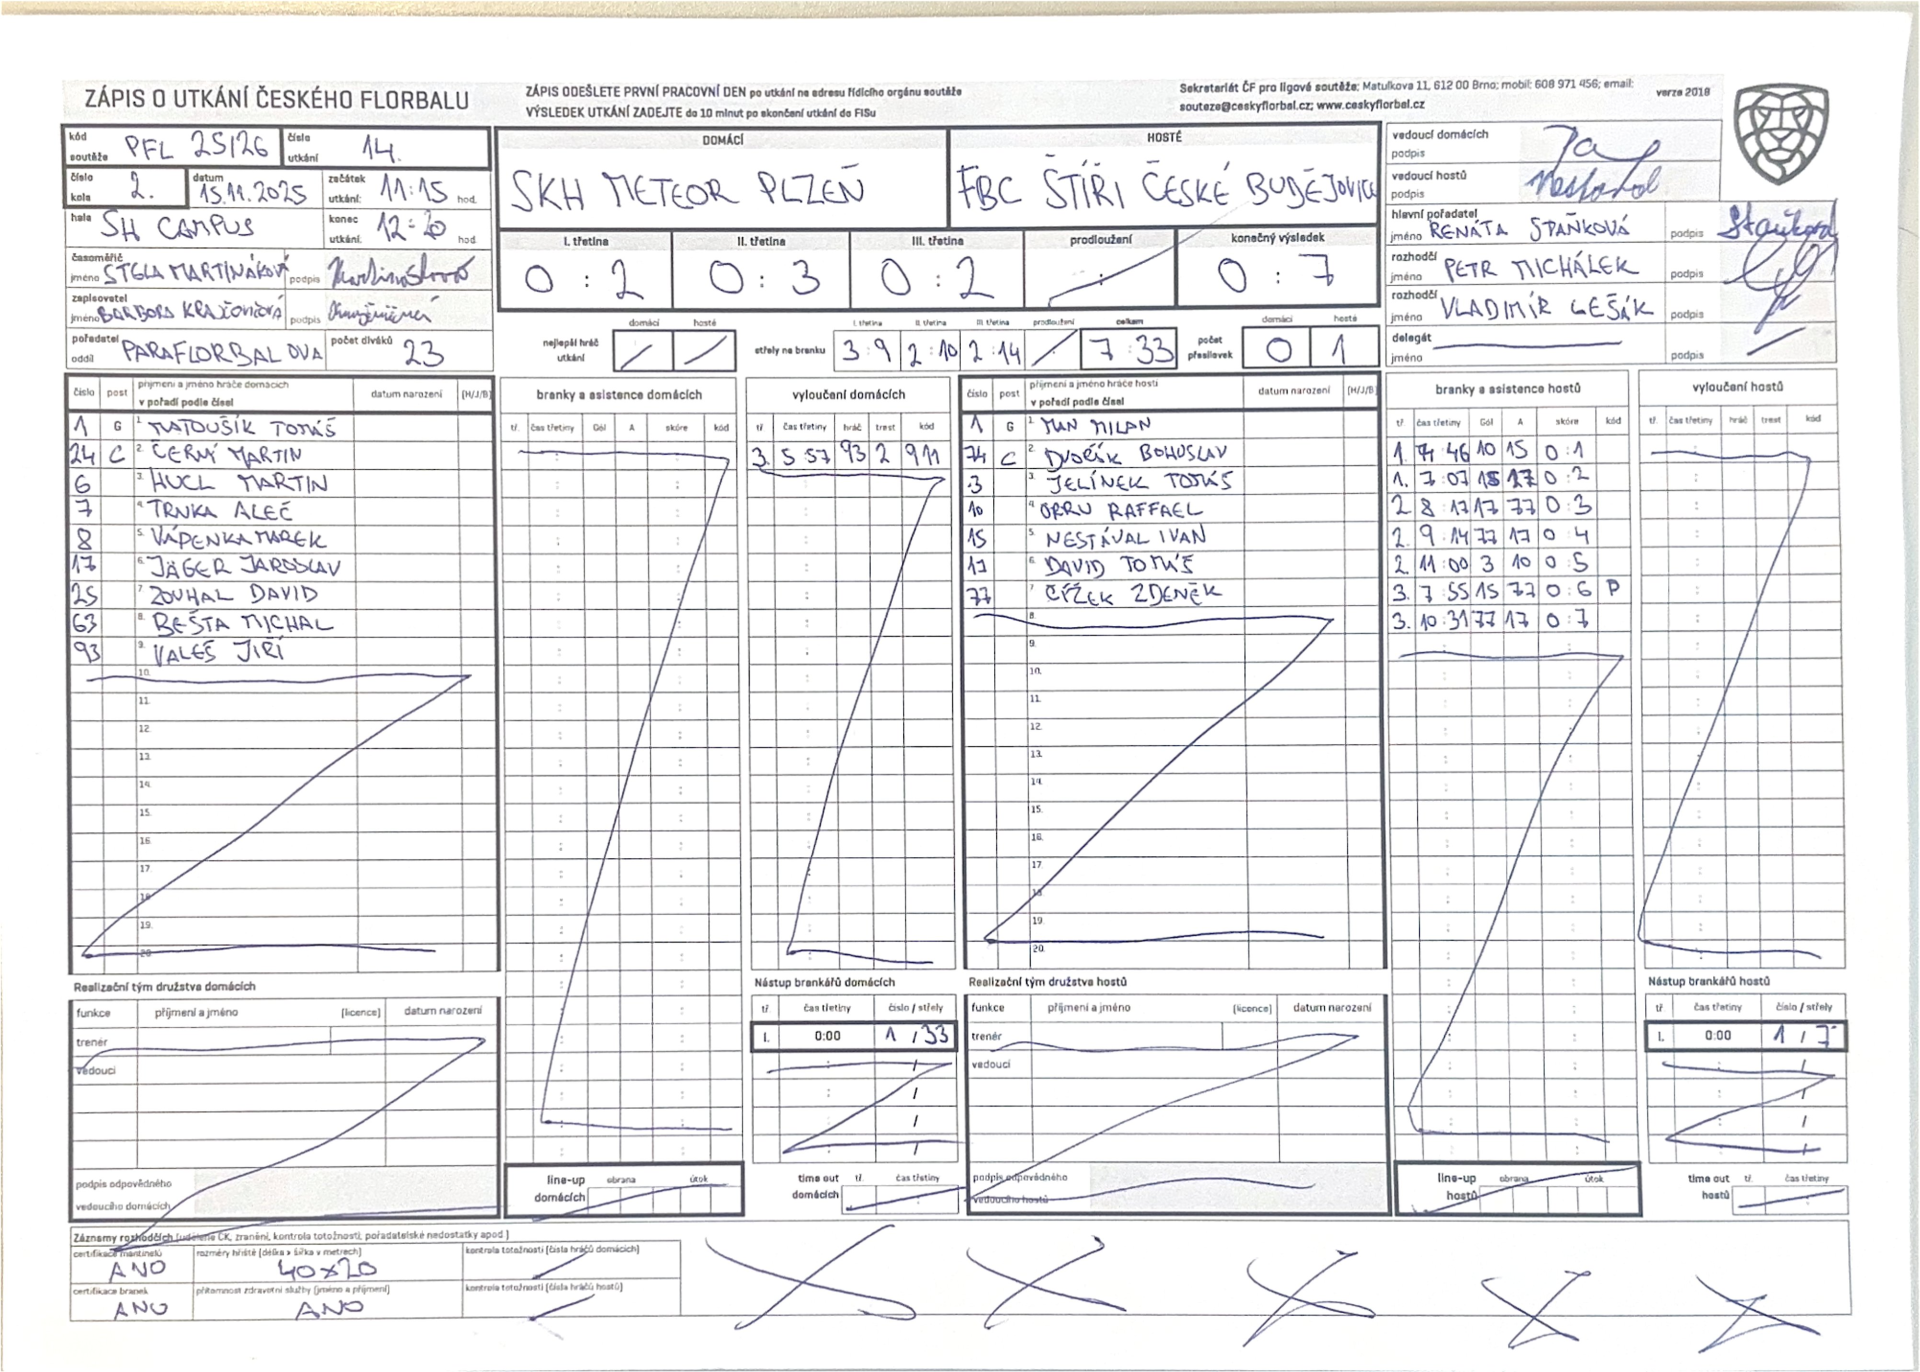 ZÁPIS O UTKÁNÍ ČESKÉHO FLORBALU
ZÁPIS ODEŠLETE PRVNÍ PRACOVNÍ DEN po utkání na adresu řídícího orgánu soutěže
VÝSLEDEK UTKÁNÍ ZADEJTE do 10 minut po skončení utkání do FISu
Sekretariát ČF pro ligové soutěže: Matulkova 11, 612 00 Brno; mobil: 608 971 456; email:
souteze@ceskyflorbal.cz; www.ceskyflorbal.cz
verze 2018
kód soutěže PFL 25/26 číslo utkání 14.
číslo kola 2. datum 15.11.2025 začátek utkání: 11:15 hod.
hala SH CAMPUS konec utkání: 12:20 hod
časoměřič jméno STELA MARTINÁKOVÁ podpis
zapisovatel jméno BARBORA podpis
pořadatel oddíl PARAFLORBAL OVA počet diváků 23
DOMÁCÍ
SKH METEOR PLZEŇ
HOSTÉ
FBC ŠTÍŘI ČESKÉ BUDĚJOVICE
I. třetina II. třetina III. třetina prodloužení konečný výsledek
0 : 2 0 : 3 0 : 2 : 0 : 7
nejlepší hráč utkání domácí hosté
střely na branku I. třetina II. třetina III. třetina prodloužení celkem
3 9 2 10 2 14 7 33
počet přesilovek domácí hosté
0 1
vedoucí domácích podpis
vedoucí hostů podpis
hlavní pořadatel jméno RENÁTA SPAŇKOVÁ podpis
rozhodčí jméno PETR MICHÁLEK podpis
rozhodčí jméno VLADIMÍR LEŠÁK podpis
delegát jméno podpis
číslo post příjmení a jméno hráče domácích v pořadí podle čísel datum narození (H/J/B)
1 G 1 MATOUŠÍK TOMÁŠ
24 C 2. ČERNÝ MARTIN
6 3. HUCL MARTIN
7 4. TRNKA ALEČ
8 5. VÁPENKA MAREK
17 6. JÄGER JAROSLAV
25 7. ZOUHAL DAVID
63 8. BEŠTA MICHAL
93 9. VALEŠ JIŘÍ
10.
11.
12.
13.
14.
15.
16.
17.
18.
19.
20.
branky a asistence domácích
tř. čas třetiny Gól A skóre kód
vyloučení domácích
tř čas třetiny hráč trest kód
3. 5 57 93 2 911
číslo post příjmení a jméno hráče hostí v pořadí podle čísel datum narození (H/J/B)
1 G 1. MAN MILAN
74 C 2. DVOŘÍK BOHUSLAV
3 3. JELÍNEK TOMÁŠ
10 4. ORRU RAFFAEL
15 5. NESTÁVAL IVAN
17 6. DAVID TOMÁŠ
77 7. ČÍŽEK ZDENĚK
8.
9.
10.
11.
12.
13.
14.
15.
16.
17.
18.
19.
20.
branky a asistence hostů
tř čas třetiny Gól A skóre kód
1. 46 10 15 0 : 1
1. 7:07 15 17 0 : 2
2 8:17 17 77 0 : 3
2. 9:14 77 17 0 4
2 11:00 3 10 0 : 5
3. 7 55 15 77 0 : 6 P
3. 10:31 77 17 0 : 7
vyloučení hostů
tř. čas třetiny hráč trest kód
Realizační tým družstva domácích
funkce příjmení a jméno (licence) datum narození
trenér
vedoucí
podpis odpovědného
vedoucího domácích
line-up domácích obrana útok
Nástup brankářů domácích
tř. čas třetiny číslo / střely
I. 0:00 1 / 33
time out domácích tř. čas třetiny
Realizační tým družstva hostů
funkce příjmení a jméno (licence) datum narození
trenér
vedoucí
podpis odpovědného
vedoucího hostů
line-up hostů obrana útok
Nástup brankářů hostů
tř. čas třetiny číslo / střely
I. 0:00 1 / 7
time out hostů tř. čas třetiny
Záznamy rozhodčích (udělené ČK, zranění, kontrola totožnosti, pořadatelské nedostatky apod.)
certifikace mantinelů ANO rozměry hřiště (délka x šířka v metrech) 40x20 kontrola totožnosti (čísla hráčů domácích)
certifikace branek ANO přítomnost zdravotní služby (jméno a příjmení) ANO kontrola totožnosti (čísla hráčů hostů)